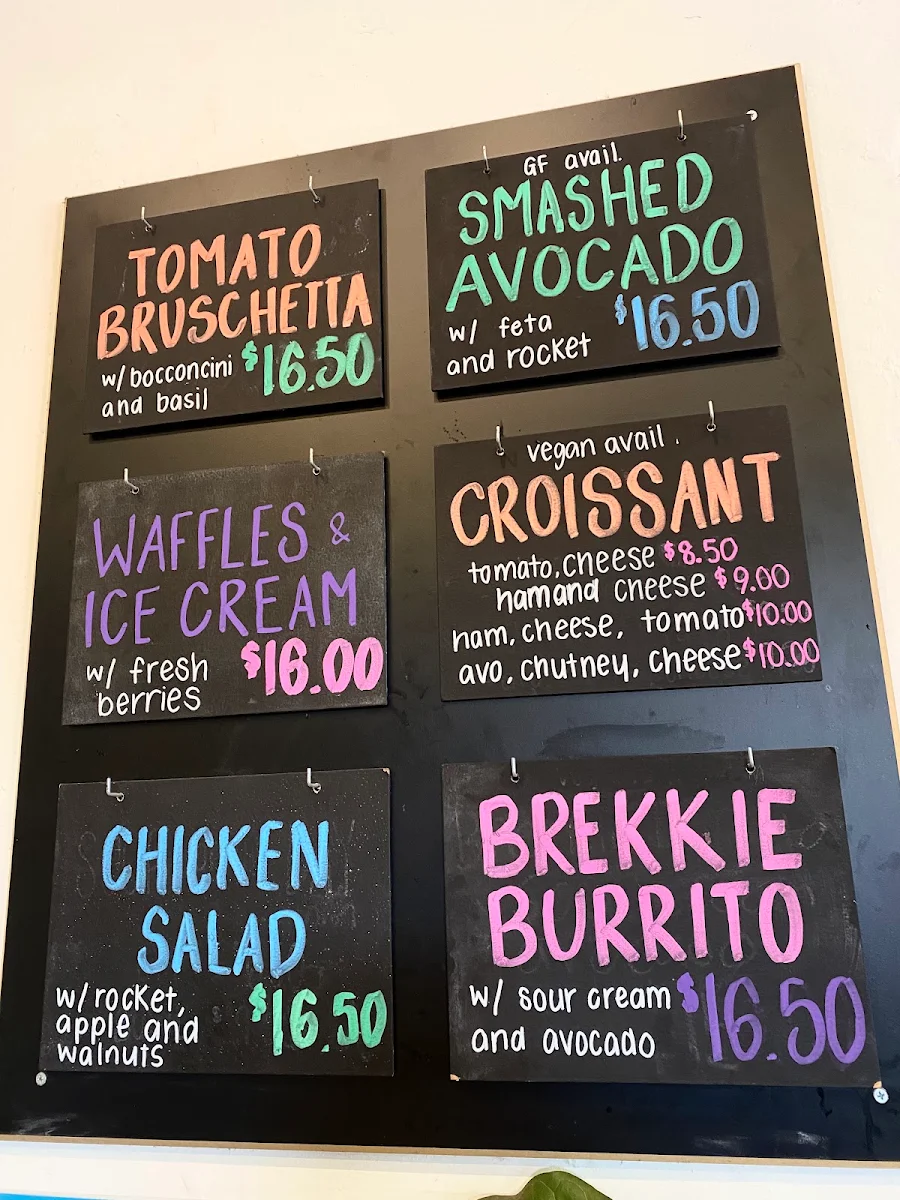 TOMATO
BRUSCHETTA
w/ bocconcini $16.50
and basil
GF avail.
SMASHED
AVOCADO
w/ feta $16.50
and rocket
WAFFLES &
ICE CREAM
w/ fresh $16.00
berries
vegan avail.
CROISSANT
tomato, cheese $8.50
ham and cheese $9.00
ham, cheese, tomato $10.00
avo, chutney, cheese $10.00
CHICKEN
SALAD
w/ rocket, $16.50
apple and
walnuts
BREKKIE
BURRITO
w/ sour cream $16.50
and avocado